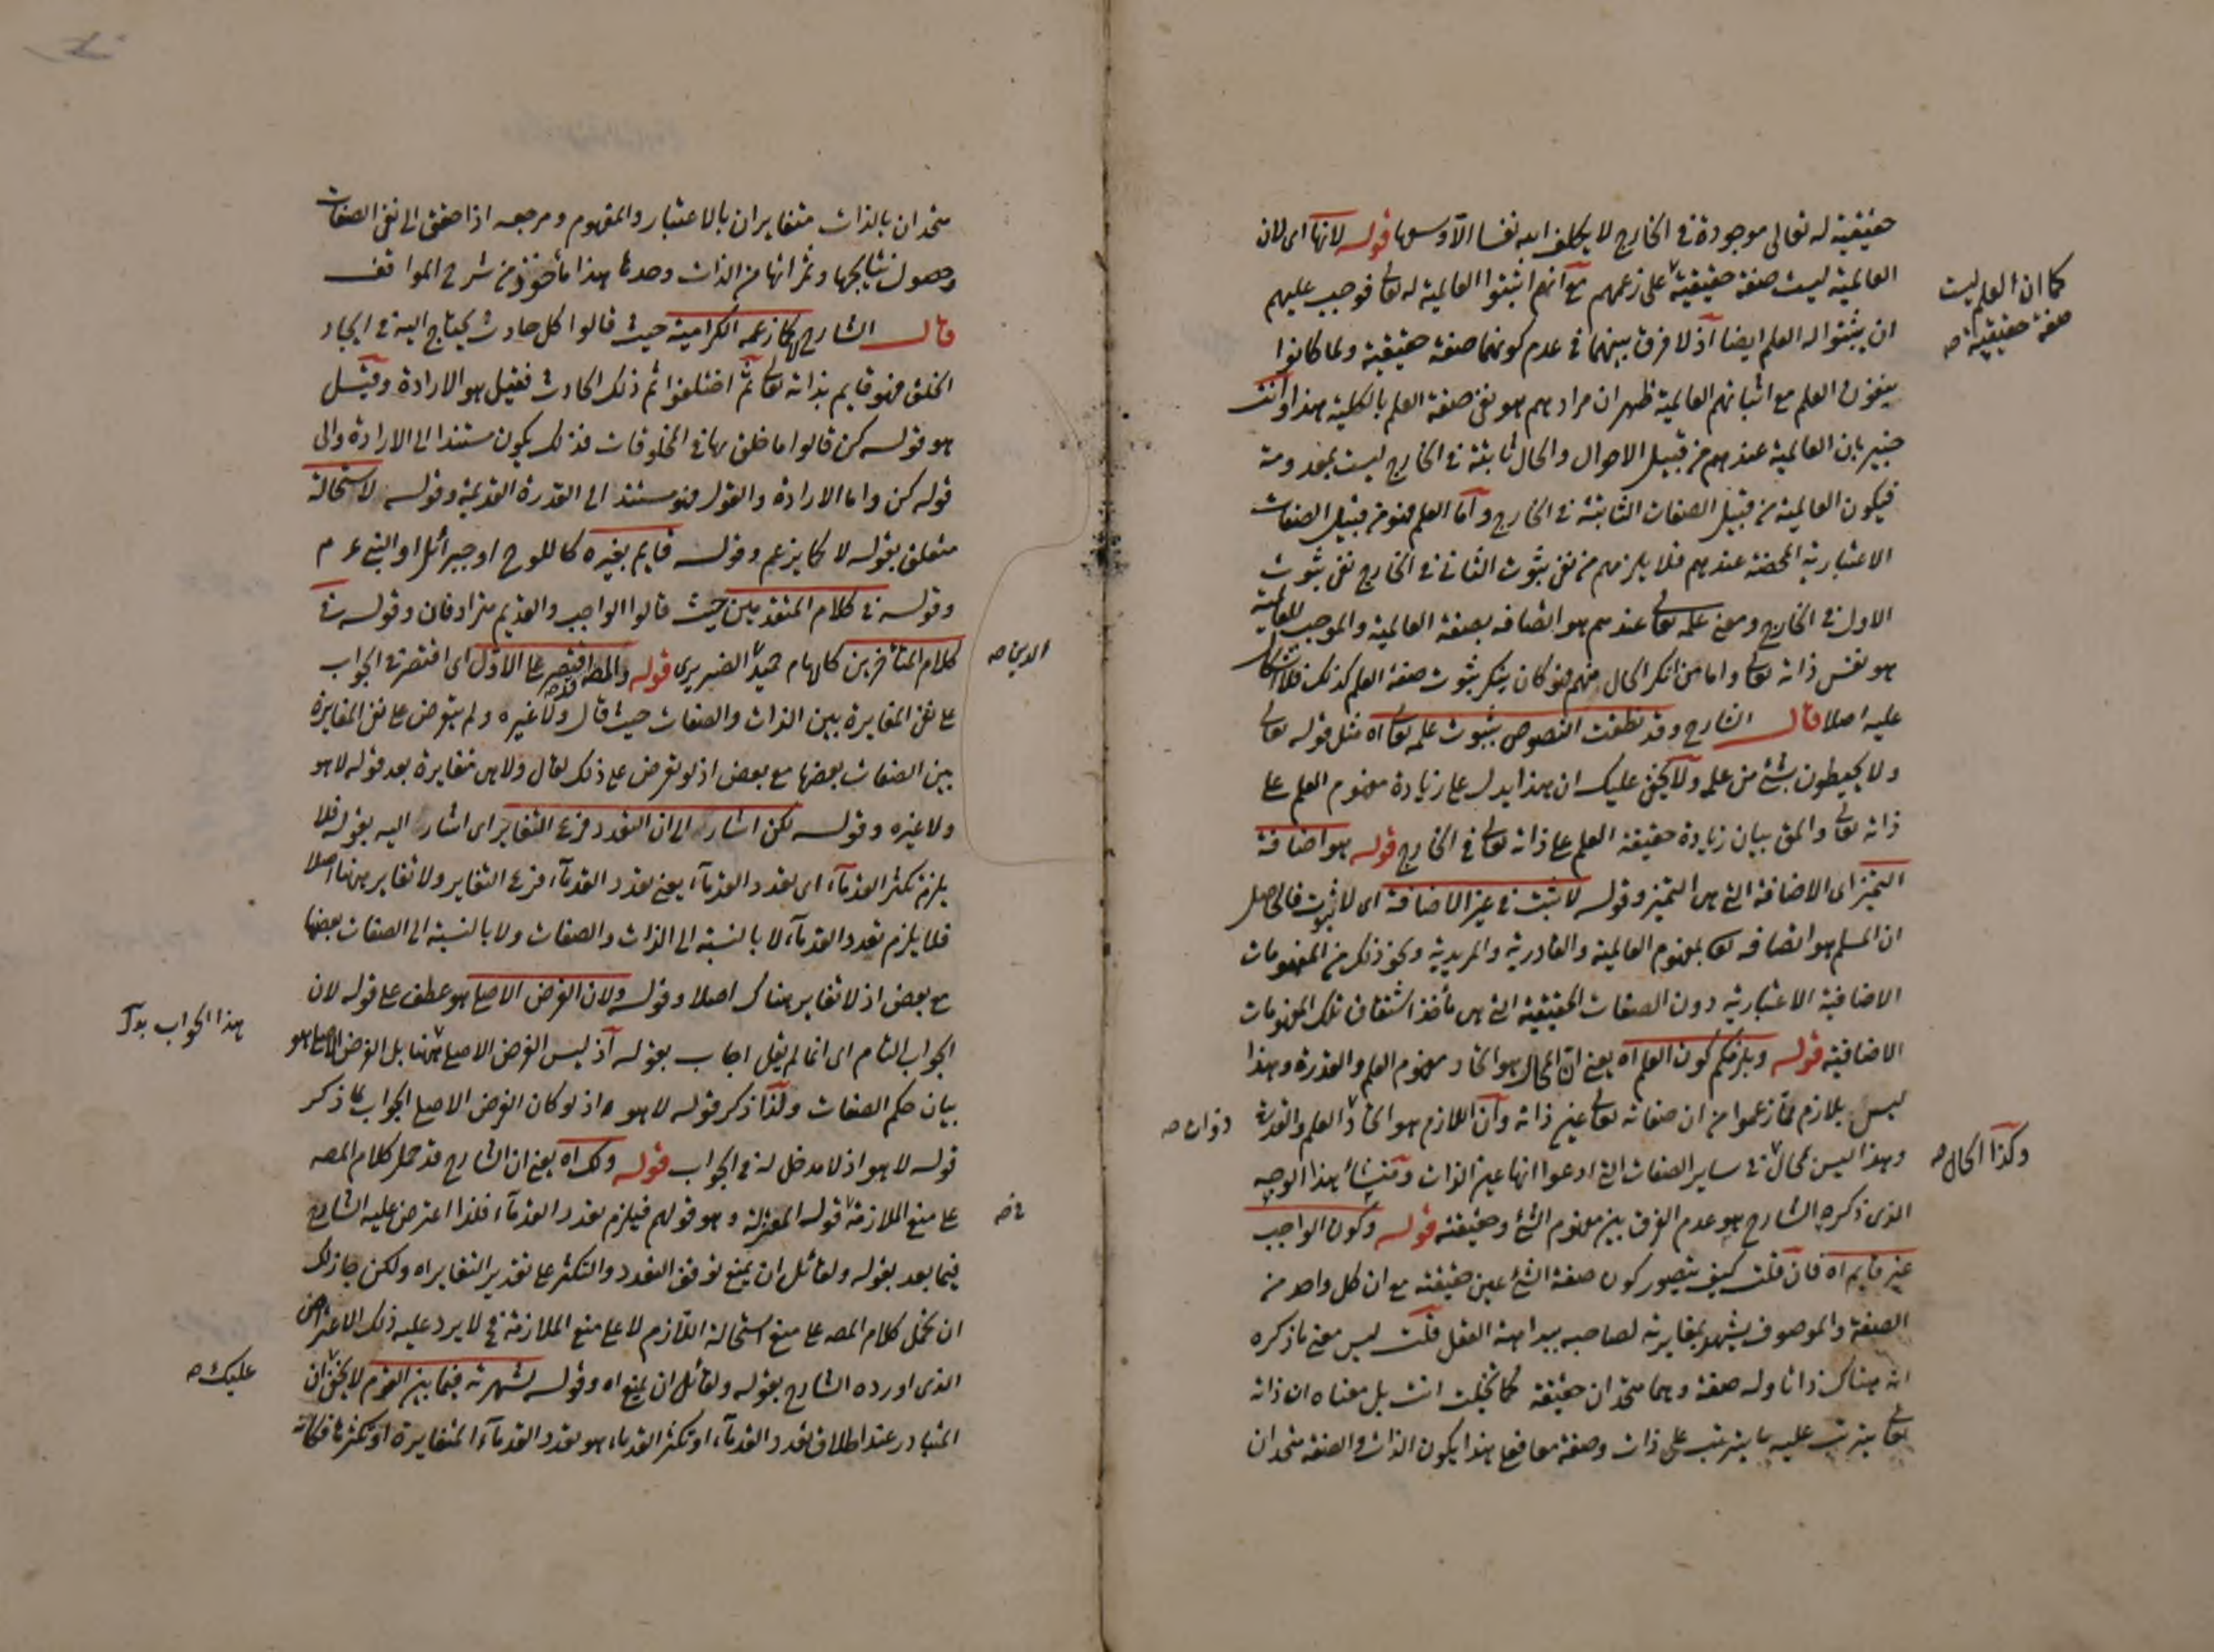 حقيقية له تعالى موجودة فى الخارج لا يكلف الله نفسا الا وسعها قوله لانها اى لان
العالمية ليست صفة حقيقية على زعمهم مع انهم اثبتوا العالمية له تعالى فوجب عليهم
كما ان العلم ليست
صفة حقيقية صح
ان يثبتوا له العلم ايضا اذ لا فرق بينهما فى عدم كونهما صفة حقيقية ولما كانوا
ينفون العلم مع اثباتهم العالمية ظهر ان مرادهم هو نفى صفة العلم بالكلية هذا وانت
خبير بان العالمية عندهم من قبيل الاحوال والحال ثابتة فى الخارج ليست بمعدومة
فيكون العالمية من قبيل الصفات الثابتة فى الخارج واما العلم فهو من قبيل الصفات
الاعتبارية المحضة عندهم فلا يلزمهم من نفى ثبوت الثانى فى الخارج نفى ثبوت
الاول فى الخارج ومعنى علمه تعالى عندهم هو اتصافه بصفة العالمية والموجب للعالمية
هو نفس ذاته تعالى واما من انكر الحال منهم فهو كان ينكر ثبوت صفة العلم كذلك فلا اشكال
عليه اصلا قال الشارح وقد نطقت النصوص بثبوت علمه تعالى اه مثل قوله تعالى
ولا يحيطون بشئ من علمه ولا يخفى عليك ان هذا يدل على زيادة مفهوم العلم على
ذاته تعالى والمق بيان زيادة حقيقة العلم على ذاته تعالى فى الخارج قوله هو اضافة
التميز اى الاضافة التى هى التميز وقوله لا تثبت فى غير الاضافة اى لا ثبوت فالحاصل
ان المسلم هو اتصافه تعالى بمفهوم العالمية والقادرية والمريدية ونحو ذلك من المفهومات
الاضافية الاعتبارية دون الصفات الحقيقية التى هى مأخذ اشتقاق تلك المفهومات
الاضافية قوله ويلزمكم كون العلم اه يعنى ان المحال هو اتحاد مفهوم العلم والقدرة وهذا
ليس بلازم مما زعموا من ان صفاته تعالى عين ذاته وان اللازم هو اتحاد العلم والقدرة
ذوات صح
وهذا ليس بمحال فى ساير الصفات التى ادعوا انها عين الذات ومنشأ هذا الوجه
وكذا الحال صح
الذى ذكره الشارح هو عدم الفرق بين مفهوم الشئ وحقيقته قوله وكون الواجب
غير قايم اه فان قلت كيف يتصور كون صفة الشئ عين حقيقته مع ان كل واحد من
الصفة والموصوف يشهد بمغايرته لصاحبه ببداهة العقل قلت ليس معنى ما ذكره
ان هناك ذاتا وله صفة وهما متحدان حقيقة كما تخيلت انت بل معناه ان ذاته
تعالى يترتب عليه ما يترتب على ذات وصفة معا فعلى هذا يكون الذات والصفة متحدان
متحدان بالذات متغايران بالاعتبار والمفهوم ومرجعه اذا حقق الى نفى الصفات
وحصول نتايجها وثمراتها من الذات وحدها هذا مأخوذ من شرح المواقف
قال الشارح لا كما زعمه الكرامية حيث قالوا كل حادث يحتاج اليه فى ايجاد
الخلق فهو قايم بذاته تعالى ثم اختلفوا ثم ذلك الحادث فقيل هو الارادة وقيل
هو قوله كن قالوا ما خلق بها فى المخلوقات فذلك يكون مستندا الى الارادة والى
قوله كن واما الارادة والقول فهو مستند الى القدرة القديمة وقوله لاستحالة
متعلق بقوله لا كما يزعم وقوله قايم بغيره كاللوح او جبرائل او النبى ع م
وقوله فى كلام المتقدمين حيث قالوا الواجب والقديم مترادفان وقوله فى
كلام المتأخرين كالامام حميد الضريرى قوله والمصه اقتصر على الاول اى اقتصر فى الجواب
الدين صح
على نفى المغايرة بين الذات والصفات حيث قال ولا غيره ولم يتعرض على نفى المغايرة
بين الصفات بعضها مع بعض اذ لو تعرض على ذلك لقال ولا هى متغايرة بعد قوله لا هو
ولا غيره وقوله لكن اشار الى ان التعدد فرع التغاير اى اشار اليه بقوله فلا
يلزم تكثر القدماء اى تعدد القدماء يعنى تعدد القدماء فرع التغاير ولا تغاير ههنا اصلا
فلا يلزم تعدد القدماء لا بالنسبة الى الذات والصفات ولا بالنسبة الى الصفات بعضها
مع بعض اذ لا تغاير هناك اصلا وقوله ولان الغرض الاصلى هو عطف على قوله لان
الجواب التام اى انما لم يقل اجاب بقوله اذ ليس الغرض الاصلى ههنا بل الغرض الاصلى هو
هذا الجواب بدل
بيان حكم الصفات ولذا ذكر قوله لا هو اه اذ لو كان الغرض الاصلى الجواب لما ذكر
قوله لا هو اذ لا مدخل له فى الجواب قوله ولك اه يعنى ان الشارح قد حمل كلام المصه
على منع الملازمة قوله المعتزلة وهو قولهم فيلزم تعدد القدماء فلذا اعترض عليه الشارح
فى صح
فيما بعد بقوله ولقائل ان يمنع توقف التعدد والتكثر على تقدير التغاير اه ولكن جاز لك
ان تحمل كلام المصه على منع استحالة اللازم لا على منع الملازمة فح لا يرد عليه ذلك الاعتراض
الذى اورده الشارح بقوله ولقائل ان يمنع اه وقوله لشهرته فيما بين القوم لا يخفى ان
عليك صح
المتبادر عند اطلاق تعدد القدماء او تكثر القدماء هو تعدد القدماء المتغايرة او تكثرها فكانه